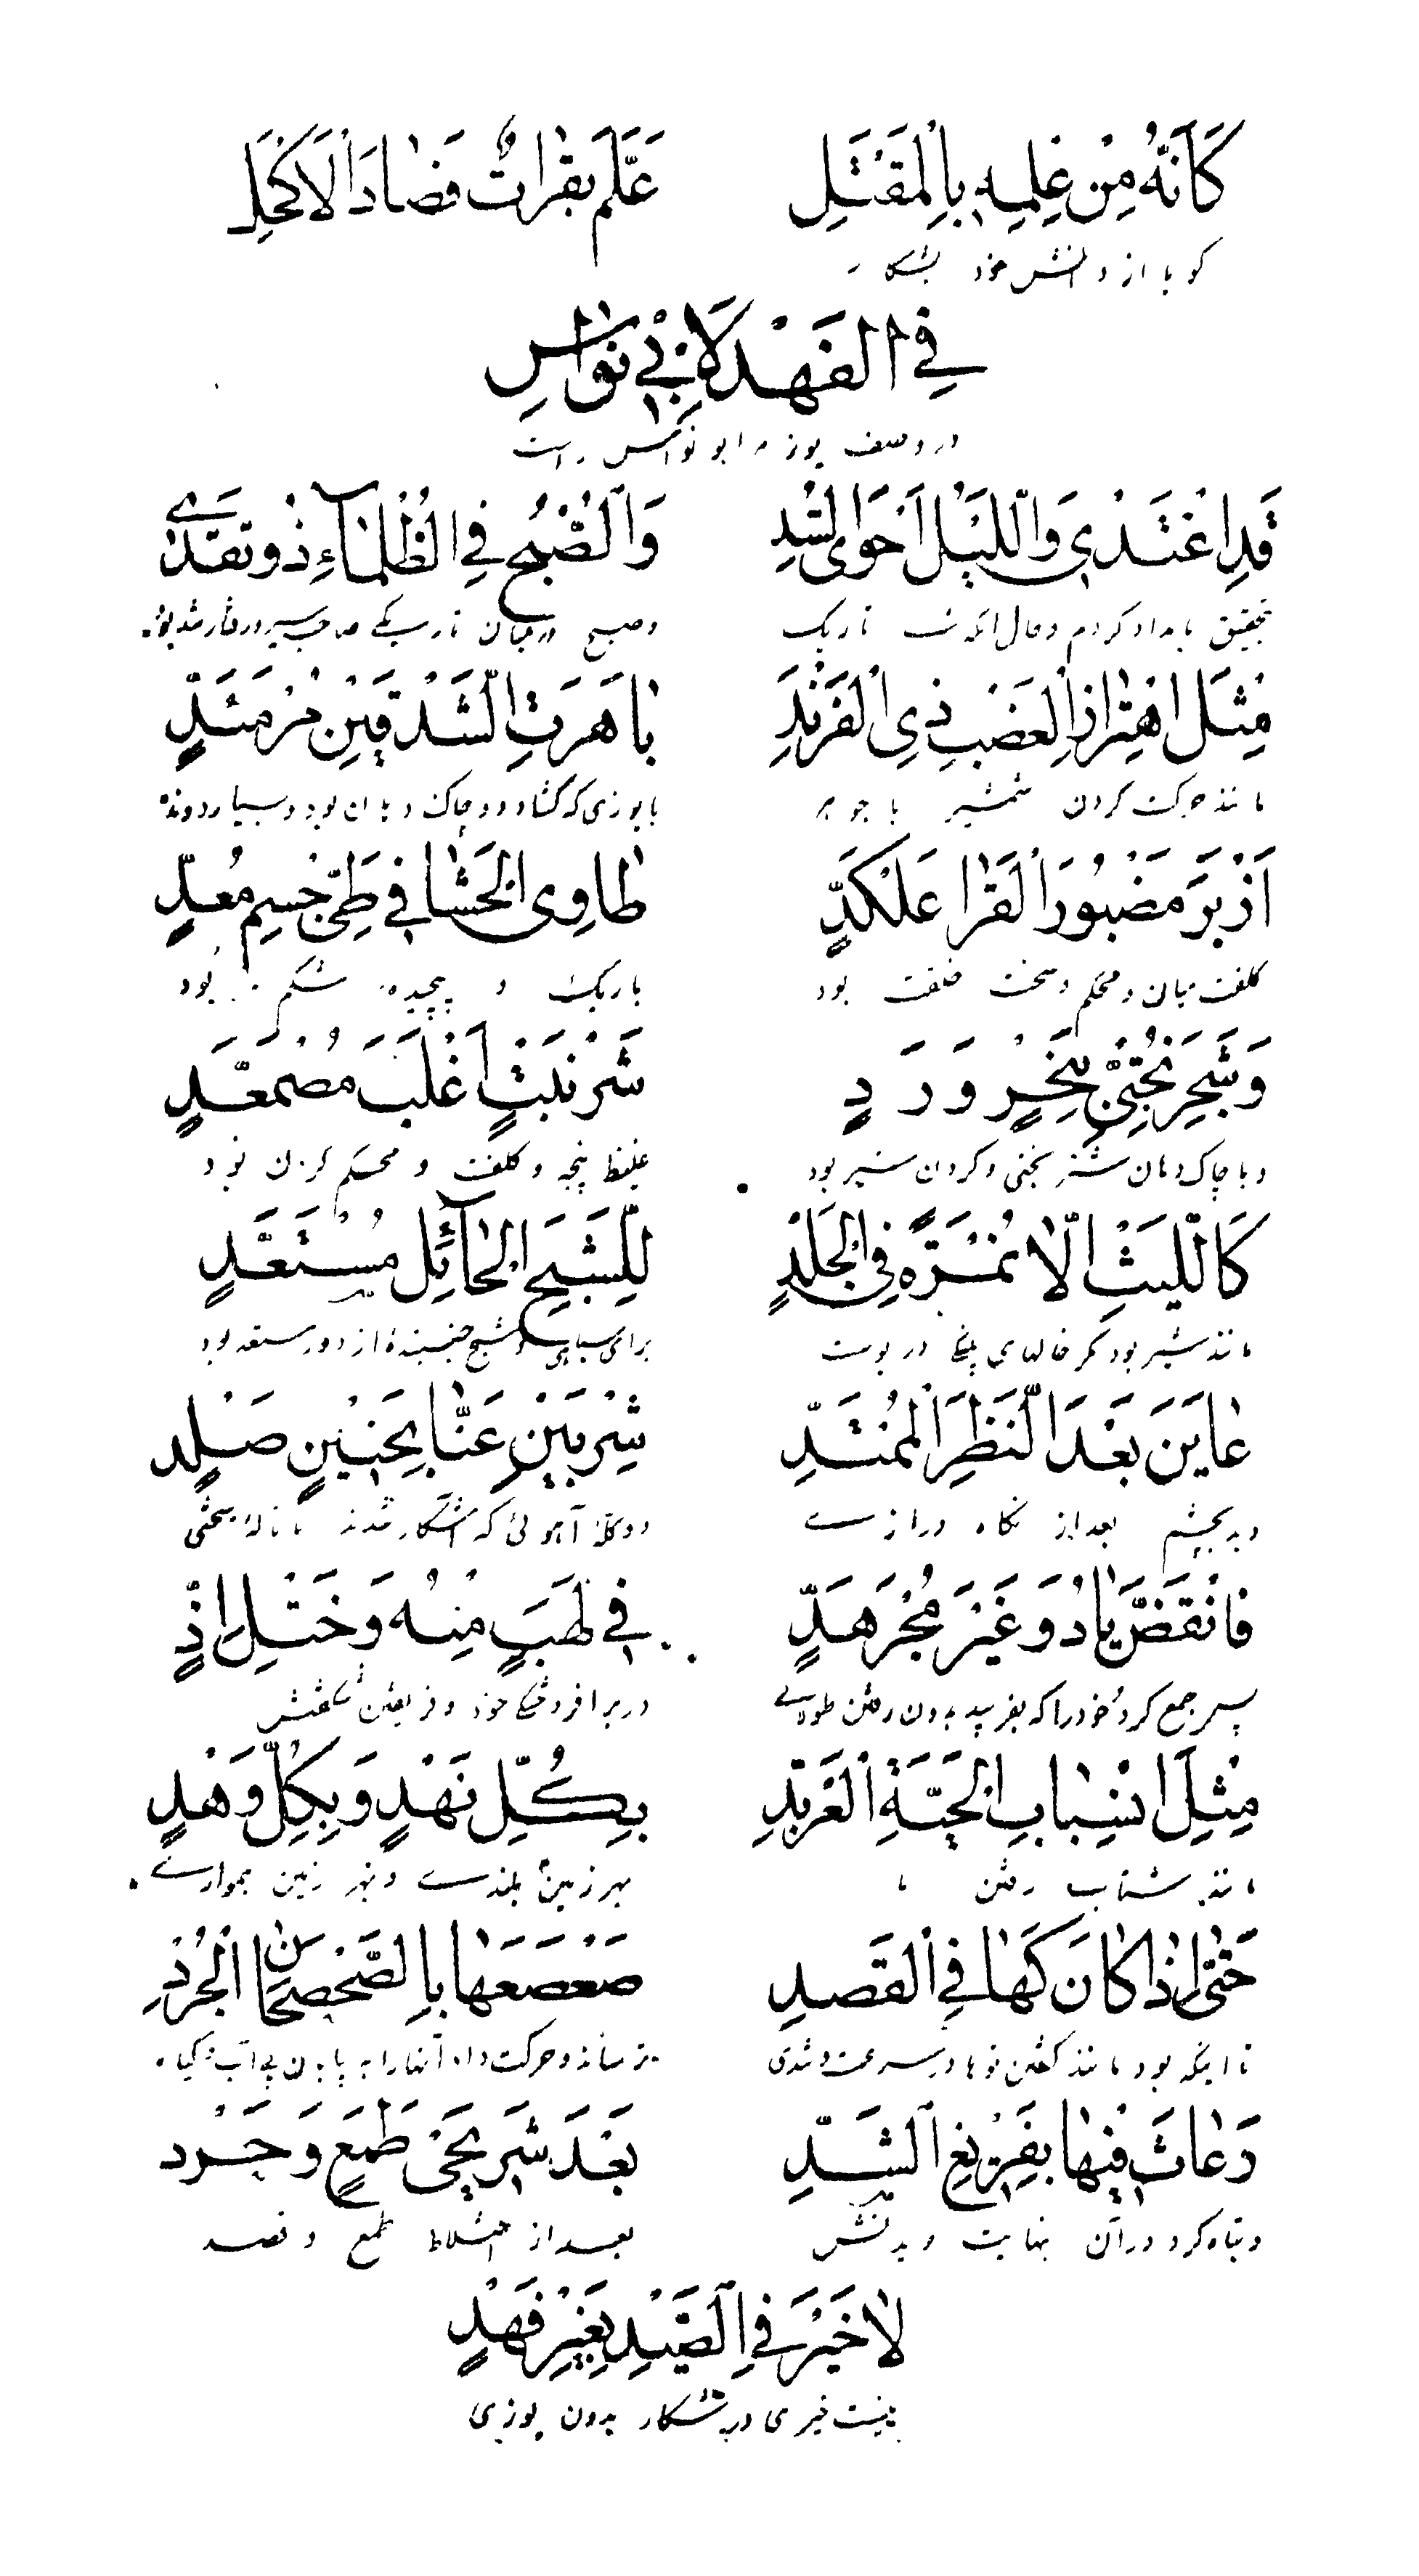 كَاَنَّهُ مِنْ عِلْمِهِ بِالْمَقْتَلِ عَلَّمَ بُقْرَاتَ فَصَادَ الْاَكْحَلِ
كويا از دانش خود بشكار
فِي الفَهْدِ لِاَبِيْ نَوْاسِ
در وصف يوز مر ابو نواس راست
قَدِ اغْتَدْيِ وَاللَّيْلُ اَحْوَى السُّدِ وَالصُّبْحُ فِي الظَّلْمَاءِ ذُو تَقَدّى
بتحقيق بامداد كردم و حال آنكه شب تاريك وصبح درميان تاريكى صاحب سير و رفتار شد بود
مِثْلَ اهْتِزَازِ الْعَضْبِ ذِي الْفَرَنْدِ بِاَهْرَتِ الشَّدْقَيْنِ مُرْمَئِدٍّ
مانند حركت كردن شمشير با جوهر بايوزى كه گشاده دو چاك دهان بود و بسيار دونده
اَزْبَرَ مَضْبُورِ الْقَرَا عَلْكَدٍّ طَاوِى الحَشَا فِي طَيِّ جِسْمٍ مُعَدٍّ
كلفت ميان و محكم و سخت خلقت بود باريك و پيچيده شكم بود
وَشَجْرِ وَرَدٍ شَرَنْبَثٍ اَغْلَبَ مُصْمَعِدٍّ
و با چاك دهان و كردن شير بود غليظ پنجه و كلفت و محكم كردن بود
كَاللَّيْثِ اِلَّا نُمْرَةً فِي الْجِلْدِ لِلشَّبَحِ الحَائِلِ مُسْتَعَدٍّ
مانند شير بود مگر خالهاى پلنگى در پوست براى سياهى و شبح جنبنده از دور مستعد بود
عَايَنَ بَعْدَ النَّظَرِ الْمُمْتَدِّ سِرْبَيْنِ عَنَّا بِحَنِيْنٍ صَلْدٍ
ديد بچشم بعد از نگاه درازى دو گلهٔ آهوئى كه آشكار شدند با نالهٔ سختى
فَانْقَضَّ يَادُو غَيْرَ مُجْرَهِدٍّ فِي لَهَبٍ مِنْهُ وَخَتْلٍ اِذٍّ
پس جمع كرد خود را كه بفريبد بدون رفتن طولانى در بر افروختگى خود و فريفتن شگفتش
مِثْلَ انْسِيَابِ الحَيَّةِ الْعَرْبَدِ بِكُلِّ نَهْدٍ وَبِكُلِّ وَهْدٍ
مانند شتاب رفتن بهر زمين بلندى و بهر زمين همواره
حَتّى اِذَا كَانَ كَهَا فِي الْقَصْدِ صَعْصَعَهَا بِالصَّحْصَحَانِ الْجُرْدِ
تا اينكه بود مانند گفتن تو ها در سرعت و تندى ترساند و حركت داد آنها را به بيابان بى آب و گياه
وَعَاثَ فِيْهَا بِفَرِيْغِ الشَّدِّ بَعْدَ شَرِيجَىْ طَمَعٍ وَحَرْدِ
و تباه كرد در آن نهايت دويدنش بعد از اختلاط طمع و قصد
لَا خَيْرَ فِي الصَّيْدِ بِغَيْرِ فَهْدٍ
نيست خيرى در شكار بدون يوزى